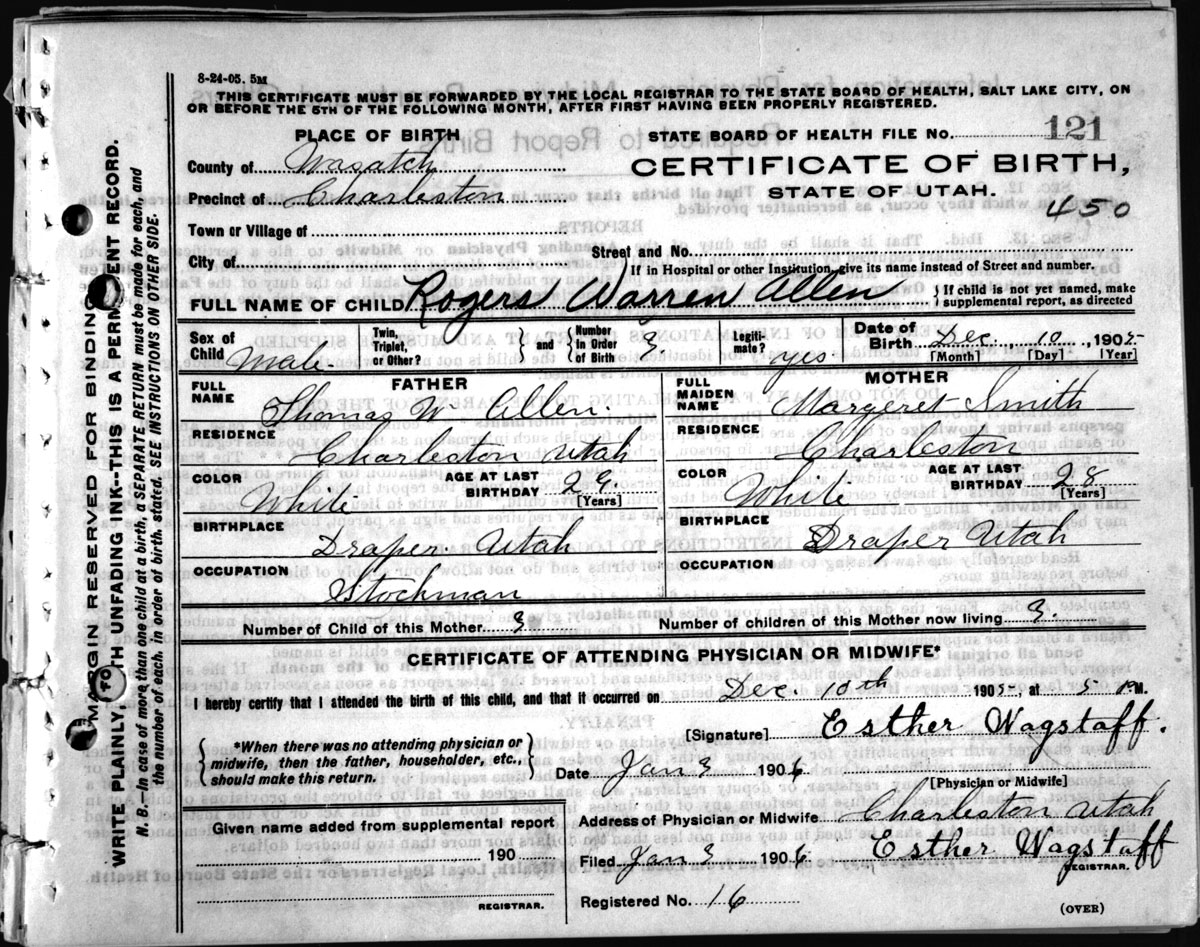 8-24-05. 5M
THIS CERTIFICATE MUST BE FORWARDED BY THE LOCAL REGISTRAR TO THE STATE BOARD OF HEALTH, SALT LAKE CITY, ON
OR BEFORE THE 5TH OF THE FOLLOWING MONTH, AFTER FIRST HAVING BEEN PROPERLY REGISTERED.
PLACE OF BIRTH
STATE BOARD OF HEALTH FILE NO. 121
County of Wasatch
CERTIFICATE OF BIRTH,
Precinct of Charleston
STATE OF UTAH.
450
Town or Village of
Street and No.
City of
If in Hospital or other Institution, give its name instead of Street and number.
FULL NAME OF CHILD Rogers Warren Allen } If child is not yet named, make supplemental report, as directed
Sex of Child Male. Twin, Triplet, or Other? } and { Number in Order of Birth 3 Legitimate? yes Date of Birth Dec. 10, 1905 [Month] [Day] [Year]
FATHER
MOTHER
FULL NAME Thomas W Allen.
FULL MAIDEN NAME Margeret Smith
RESIDENCE Charleston Utah
RESIDENCE Charleston
COLOR White AGE AT LAST BIRTHDAY 29 [Years]
COLOR White AGE AT LAST BIRTHDAY 28 [Years]
BIRTHPLACE Draper Utah
BIRTHPLACE Draper Utah
OCCUPATION Stockman
OCCUPATION
Number of Child of this Mother 3
Number of children of this Mother now living 3
CERTIFICATE OF ATTENDING PHYSICIAN OR MIDWIFE*
I hereby certify that I attended the birth of this child, and that it occurred on Dec. 10th 1905, at 5 P.M.
{ *When there was no attending physician or midwife, then the father, householder, etc., should make this return. }
[Signature] Esther Wagstaff.
Date Jan 3 1906
[Physician or Midwife]
Given name added from supplemental report
190
REGISTRAR.
Address of Physician or Midwife Charleston Utah
Filed Jan 3 1906 Esther Wagstaff
REGISTRAR.
Registered No. 16
(OVER)
MARGIN RESERVED FOR BINDING
WRITE PLAINLY, WITH UNFADING INK--THIS IS A PERMANENT RECORD.
N. B.--In case of more than one child at a birth, a SEPARATE RETURN must be made for each, and
the number of each, in order of birth, stated. SEE INSTRUCTIONS ON OTHER SIDE.